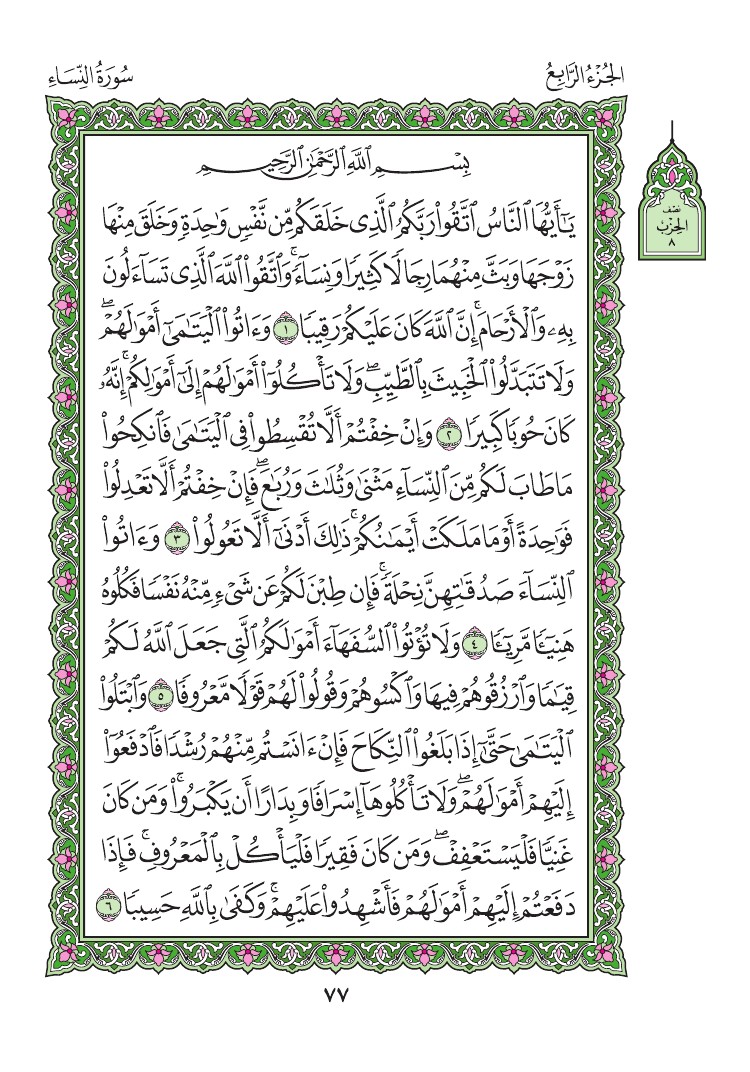 الجُزْءُ الرَّابِعُ
سُورَةُ النِّسَاءِ
نصْف
الحِزْب
٨
بِسْمِ ٱللَّهِ ٱلرَّحْمَٰنِ ٱلرَّحِيمِ
يَٰٓأَيُّهَا ٱلنَّاسُ ٱتَّقُوا۟ رَبَّكُمُ ٱلَّذِى خَلَقَكُم مِّن نَّفْسٍ وَٰحِدَةٍ وَخَلَقَ مِنْهَا
زَوْجَهَا وَبَثَّ مِنْهُمَا رِجَالًا كَثِيرًا وَنِسَآءً ۚ وَٱتَّقُوا۟ ٱللَّهَ ٱلَّذِى تَسَآءَلُونَ
بِهِۦ وَٱلْأَرْحَامَ ۚ إِنَّ ٱللَّهَ كَانَ عَلَيْكُمْ رَقِيبًا ١ وَءَاتُوا۟ ٱلْيَتَٰمَىٰٓ أَمْوَٰلَهُمْ ۖ
وَلَا تَتَبَدَّلُوا۟ ٱلْخَبِيثَ بِٱلطَّيِّبِ ۖ وَلَا تَأْكُلُوٓا۟ أَمْوَٰلَهُمْ إِلَىٰٓ أَمْوَٰلِكُمْ ۚ إِنَّهُۥ
كَانَ حُوبًا كَبِيرًا ٢ وَإِنْ خِفْتُمْ أَلَّا تُقْسِطُوا۟ فِى ٱلْيَتَٰمَىٰ فَٱنكِحُوا۟
مَا طَابَ لَكُم مِّنَ ٱلنِّسَآءِ مَثْنَىٰ وَثُلَٰثَ وَرُبَٰعَ ۖ فَإِنْ خِفْتُمْ أَلَّا تَعْدِلُوا۟
فَوَٰحِدَةً أَوْ مَا مَلَكَتْ أَيْمَٰنُكُمْ ۚ ذَٰلِكَ أَدْنَىٰٓ أَلَّا تَعُولُوا۟ ٣ وَءَاتُوا۟
ٱلنِّسَآءَ صَدُقَٰتِهِنَّ نِحْلَةً ۚ فَإِن طِبْنَ لَكُمْ عَن شَىْءٍ مِّنْهُ نَفْسًا فَكُلُوهُ
هَنِيٓـًٔا مَّرِيٓـًٔا ٤ وَلَا تُؤْتُوا۟ ٱلسُّفَهَآءَ أَمْوَٰلَكُمُ ٱلَّتِى جَعَلَ ٱللَّهُ لَكُمْ
قِيَٰمًا وَٱرْزُقُوهُمْ فِيهَا وَٱكْسُوهُمْ وَقُولُوا۟ لَهُمْ قَوْلًا مَّعْرُوفًا ٥ وَٱبْتَلُوا۟
ٱلْيَتَٰمَىٰ حَتَّىٰٓ إِذَا بَلَغُوا۟ ٱلنِّكَاحَ فَإِنْ ءَانَسْتُم مِّنْهُمْ رُشْدًا فَٱدْفَعُوٓا۟
إِلَيْهِمْ أَمْوَٰلَهُمْ ۖ وَلَا تَأْكُلُوهَآ إِسْرَافًا وَبِدَارًا أَن يَكْبَرُوا۟ ۚ وَمَن كَانَ
غَنِيًّا فَلْيَسْتَعْفِفْ ۖ وَمَن كَانَ فَقِيرًا فَلْيَأْكُلْ بِٱلْمَعْرُوفِ ۚ فَإِذَا
دَفَعْتُمْ إِلَيْهِمْ أَمْوَٰلَهُمْ فَأَشْهِدُوا۟ عَلَيْهِمْ ۚ وَكَفَىٰ بِٱللَّهِ حَسِيبًا ٦
٧٧